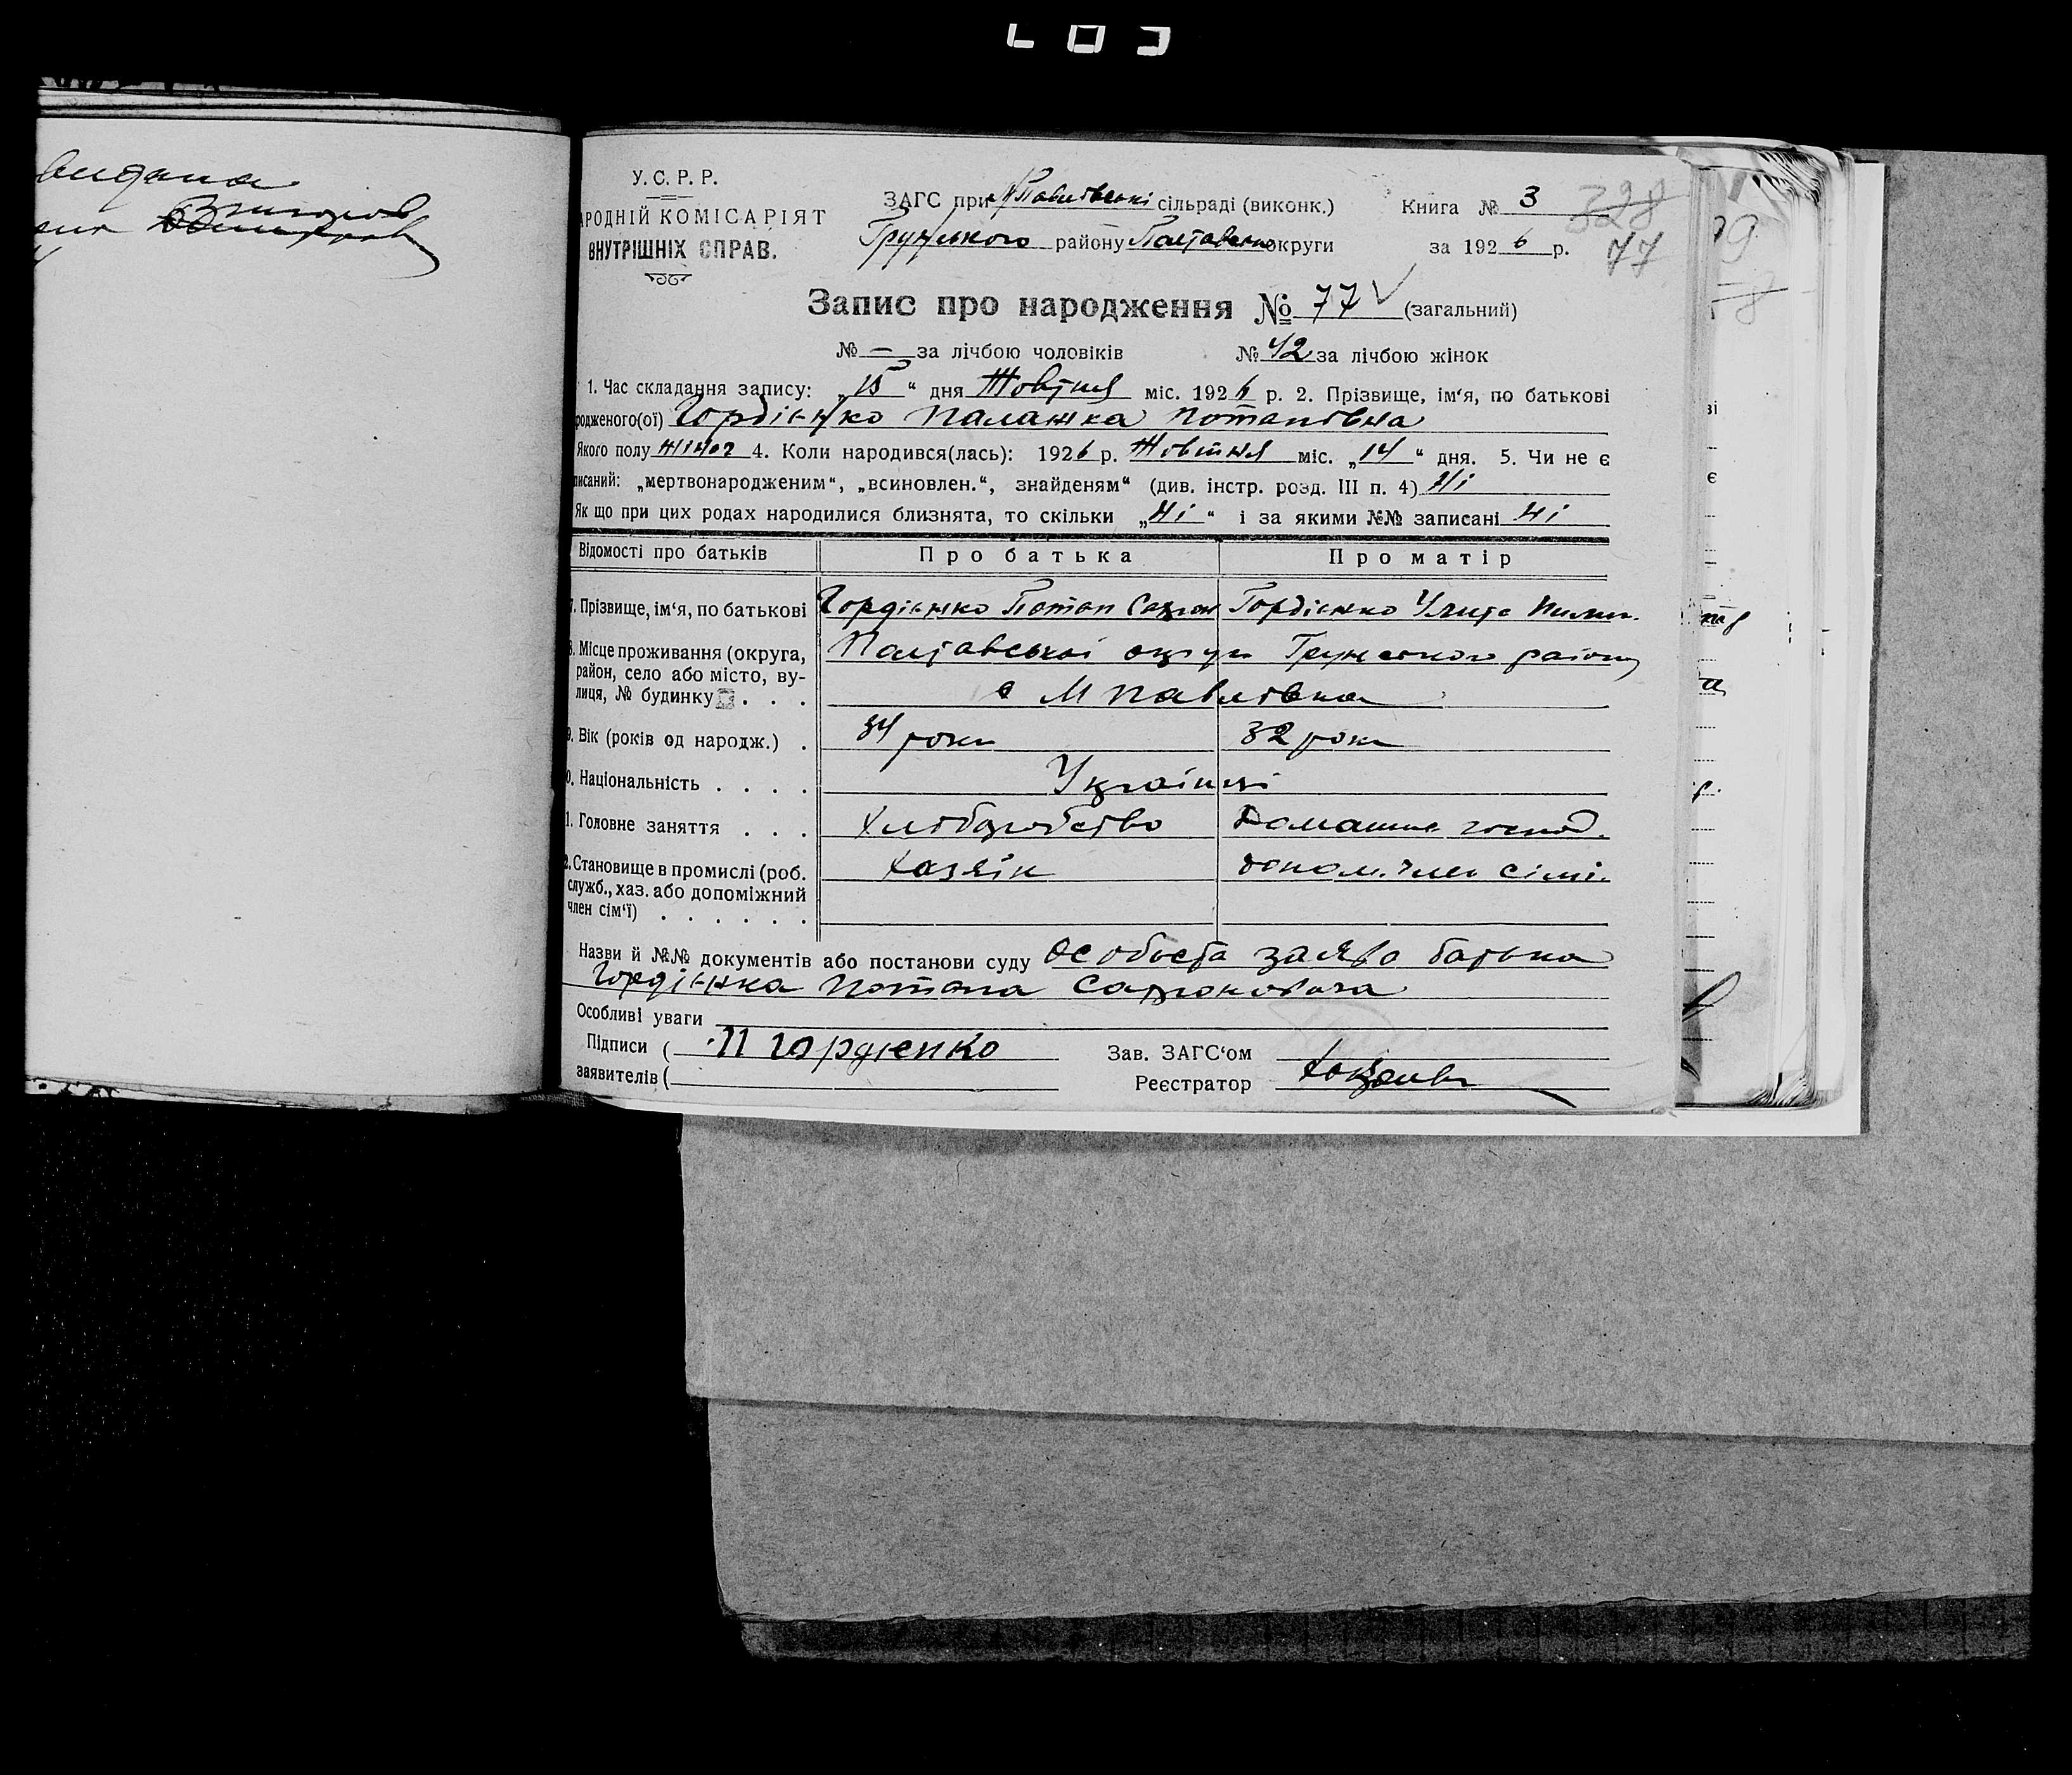 видана
У. С. Р. Р.
АРОДНІЙ КОМІСАРІЯТ
ВНУТРІШНІХ СПРАВ.
ЗАГС при М Павлівські сільраді (виконк.)
Грунського району Полтавської округи
Книга № 3
за 1926 р.
328
77
Запис про народження № 77 (загальний)
№ — за лічбою чоловіків № 42 за лічбою жінок
1. Час складання запису: „15“ дня Жовтня міс. 1926 р. 2. Прізвище, ім‘я, по батькові
родженого(ої) Гордієнко Палажка Потапівна
Якого полу жіноч 4. Коли народився(лась): 1926 р. Жовтня міс. „14“ дня. 5. Чи не є
писаний: „мертвонародженим“, „всиновлен.“, знайденям“ (див. інстр. розд. III п. 4) Ні
Як що при цих родах народилися близнята, то скільки „Ні“ і за якими №№ записані Ні
Відомості про батьків Про батька Про матір
7. Прізвище, ім‘я, по батькові Гордієнко Потап Гордієнко
8. Місце проживання (округа, район, село або місто, вулиця, № будинку . . . Полтавської округи Грунського району
с М Павлівка
9. Вік (років од народж.) . 34 роки 32 роки
0. Національність . . . . Українці
1. Головне заняття . . . Хліборобство Домашнє госпoд.
2. Становище в промислі (роб. служб., хаз. або допоміжний член сім‘ї) . . . . . . Хазяїн допом. член сімї.
Назви й №№ документів або постанови суду Особиста заява батька
Гордієнка Потапа
Особливі уваги
Підписи ( П Гордіенко Зав. ЗАГС‘ом
заявителів ( Реєстратор